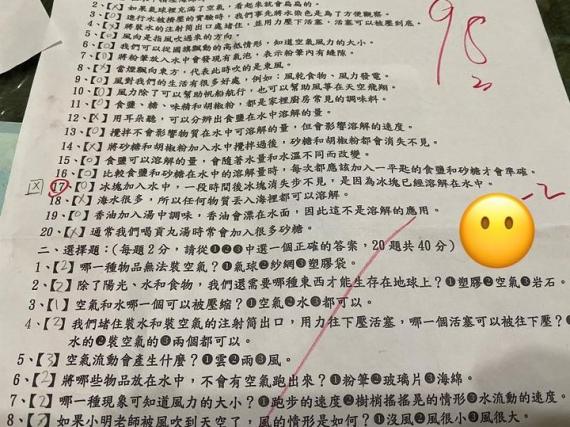 98
20
2、【X】如果氣球裡充滿了空氣，看起來就會扁扁的。
3、【O】進行水被擠壓的實驗時，我們事先將水染色是為了方便觀察。
將裝水的注射筒出口處堵住，並用力壓下活塞，活塞可以被壓到底。
5、【O】風向是指風吹過來的方向。
6、【O】我們可以從國旗飄動的高低情形，知道空氣風力的大小。
7、將粉筆放入水中會發現有氣泡，表示粉筆內有縫隙。
8、【X】當煙飄向東方，代表此時吹的是東風。
9、【O】風對我們的生活有很多好處，例如：風乾食物、風力發電。
10、【O】風力除了可以幫助帆船航行，也可以幫助風箏在天空飛翔。
11、【O】食鹽、糖、味精和胡椒粉，都是家裡廚房常見的調味料。
12、【X】用耳朵聽，可以分辨出食鹽在水中溶解的量。
13、【O】攪拌不會影響物質在水中可溶解的量，但會影響溶解的速度。
14、【X】將砂糖和胡椒粉加入水中攪拌過後，砂糖和胡椒粉都會消失不見。
15、【O】食鹽可以溶解的量，會隨著水量和水溫不同而改變。
16、【O】比較食鹽和砂糖在水中的溶解量時，每次都應該加入一平匙的食鹽和砂糖才會準確。
【X】17、【O】冰塊加入水中，一段時間後冰塊消失步不見，是因為冰塊已經溶解在水中。
18、【X】海水很多，所以任何物質丟入海裡都可以溶解。
-2
19、【O】香油加入湯中調味，香油會漂在水面，因此這不是溶解的應用。
20、【X】通常我們喝貢丸湯時常會加入很多砂糖。
二、選擇題：(每題2分，請從❶❷❸中選一個正確的答案，20題共40分)
1、【2】哪一種物品無法裝空氣？❶氣球❷紗網❸塑膠袋。
2、【2】除了陽光、水和食物，我們還需要哪種東西才能生存在地球上？❶塑膠❷空氣❸岩石。
3、【1】空氣和水哪一個可以被壓縮？❶空氣❷水❸都可以。
4、【2】我們堵住裝水和裝空氣的注射筒出口，用力往下壓活塞，哪一個活塞可以被往下壓？
水的❷裝空氣的❸兩個都可以。
5、【3】空氣流動會產生什麼？❶雲❷雨❸風。
6、【2】將哪些物品放在水中，不會有空氣跑出來？❶粉筆❷玻璃片❸海綿。
7、【2】哪一種現象可知道風力的大小？❶跑步的速度❷樹梢搖搖晃的情形❸水流動的速度。
8、如果小明老師被風吹到天空了，風的情形是如何？❶沒風❷風很小❸風很大。